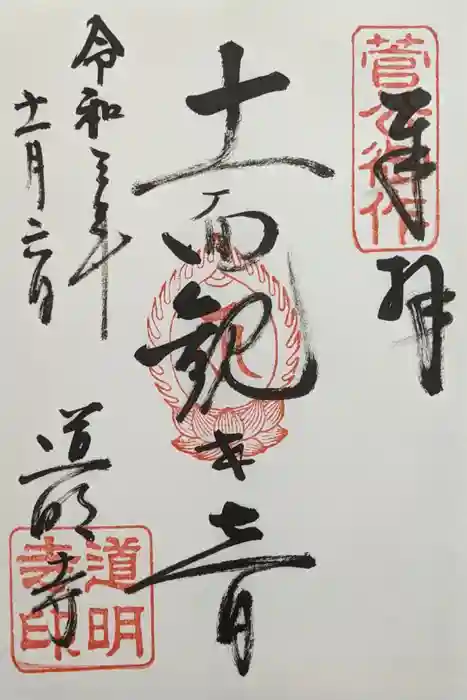 奉拝
菅公御作
十一面観世音
令和三年
十一月二日
道明寺
道明
寺印